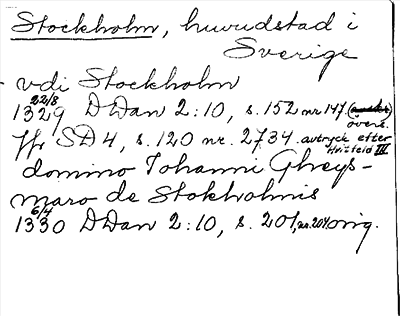 Stockholm, huvudstad i
Sverige
- vdi Stockholm
22/8
1329 DDan 2:10, s. 152 nr 147
övers.
Jfr SD 4, s. 120 nr. 2734. avtryck efter
Hvitfeld III
domino Johanni Gheys-
maro de Stokholmis
6/4
1330 DDan 2:10, s. 201, nr. 204 orig.